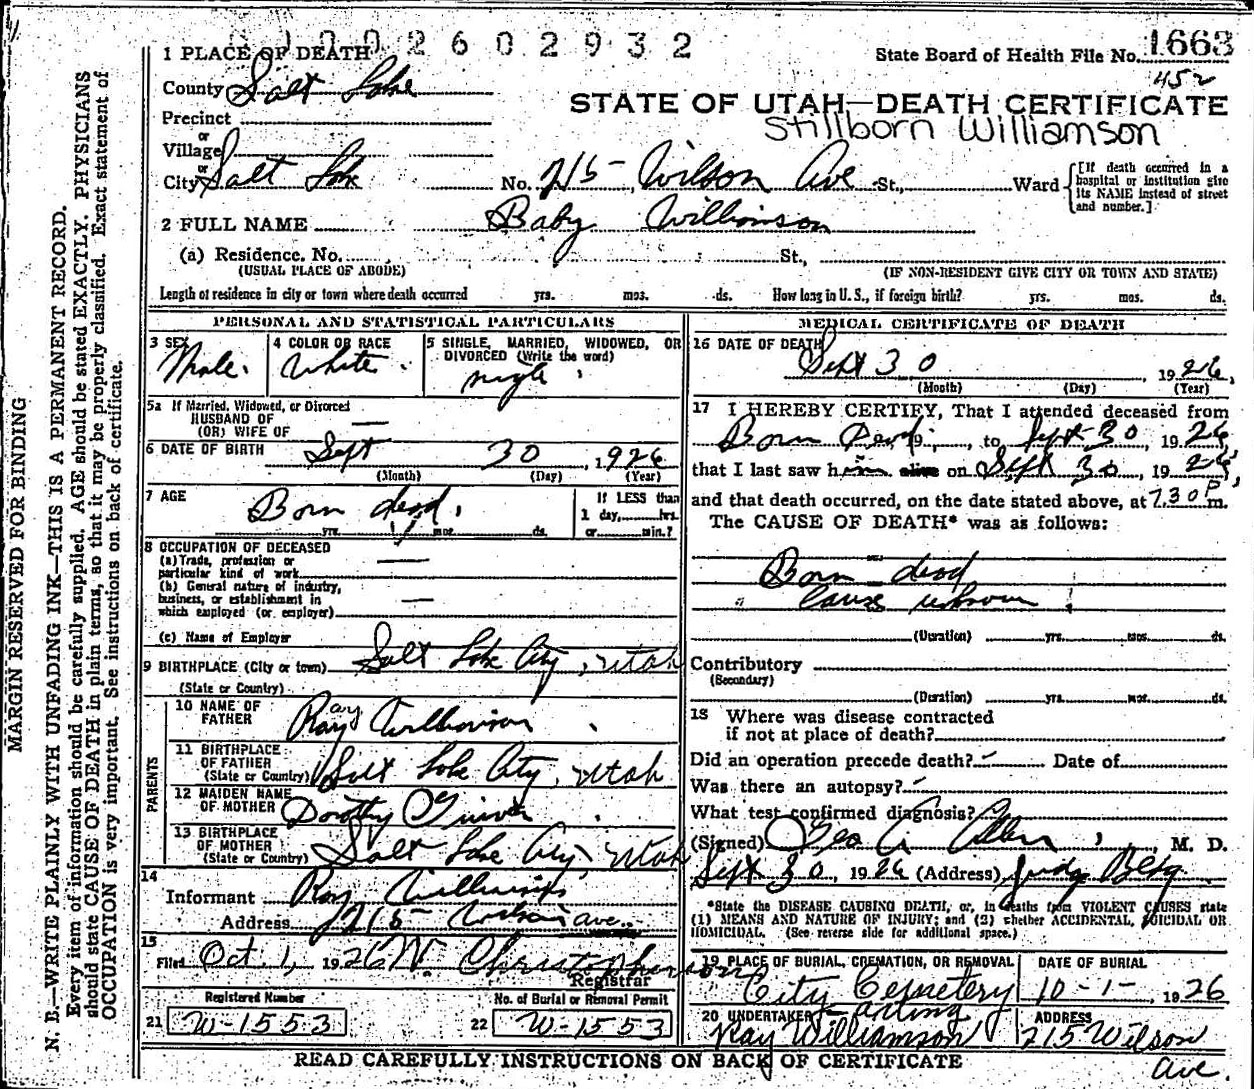 1002602932
1 PLACE OF DEATH
State Board of Health File No. 1663
County Salt Lake
452
STATE OF UTAH—DEATH CERTIFICATE
Precinct
Stillborn Williamson
or
Village
or
City Salt Lake No. 215 Wilson Ave St., Ward
[If death occurred in a hospital or institution give its NAME instead of street and number.]
2 FULL NAME Baby Williamson
(a) Residence. No. St.,
(USUAL PLACE OF ABODE) (IF NON-RESIDENT GIVE CITY OR TOWN AND STATE)
Length of residence in city or town where death occurred yrs. mos. ds. How long in U. S., if foreign birth? yrs. mos. ds.
PERSONAL AND STATISTICAL PARTICULARS
3 SEX Male.
4 COLOR OR RACE White
5 SINGLE, MARRIED, WIDOWED, OR
DIVORCED (Write the word)
single
5a If Married, Widowed, or Divorced
HUSBAND OF
(OR) WIFE OF —
6 DATE OF BIRTH Sept 30, 1926
(Month) (Day) (Year)
7 AGE Born dead.
yrs. mos. ds.
If LESS than
1 day, hrs.
or min.?
8 OCCUPATION OF DECEASED
(a) Trade, profession or
particular kind of work —
(b) General nature of industry,
business, or establishment in
which employed (or employer) —
(c) Name of Employer
9 BIRTHPLACE (City or town) Salt Lake City, Utah
(State or Country)
PARENTS
10 NAME OF
FATHER Ray Williamson
11 BIRTHPLACE
OF FATHER
(State or Country) Salt Lake City, Utah
12 MAIDEN NAME
OF MOTHER Dorothy
13 BIRTHPLACE
OF MOTHER
(State or Country) Salt Lake City, Utah
14
Informant Ray Williamson
Address 215 Wilson ave.
15
Filed Oct. 1, 1926 W. Christopherson
Registrar
Registered Number
21 W-1553
No. of Burial or Removal Permit
22 W-1553
MEDICAL CERTIFICATE OF DEATH
16 DATE OF DEATH
Sept 30, 1926,
(Month) (Day) (Year)
17 I HEREBY CERTIFY, That I attended deceased from
Born Dead 19, to Sept 30 1926,
that I last saw him alive on Sept 30, 1926,
and that death occurred, on the date stated above, at 7.30 P m.
The CAUSE OF DEATH* was as follows:
Born dead
Cause unknown
(Duration) yrs. mos. ds.
Contributory
(Secondary)
(Duration) yrs. mos. ds.
18 Where was disease contracted
if not at place of death?
Did an operation precede death? Date of
Was there an autopsy?
What test confirmed diagnosis?
(Signed) Geo A Allen, M. D.
Sept 30, 1926 (Address) Judge Bldg
*State the DISEASE CAUSING DEATH, or, in deaths from VIOLENT CAUSES state
(1) MEANS AND NATURE OF INJURY; and (2) whether ACCIDENTAL, SUICIDAL OR
HOMICIDAL. (See reverse side for additional space.)
19 PLACE OF BURIAL, CREMATION, OR REMOVAL
City Cemetery
DATE OF BURIAL
10-1-, 1926
20 UNDERTAKER—Acting
Ray Williamson
ADDRESS
215 Wilson
Ave.
READ CAREFULLY INSTRUCTIONS ON BACK OF CERTIFICATE
MARGIN RESERVED FOR BINDING
N. B.—WRITE PLAINLY WITH UNFADING INK—THIS IS A PERMANENT RECORD.
Every item of information should be carefully supplied. AGE should be stated EXACTLY. PHYSICIANS
should state CAUSE OF DEATH in plain terms, so that it may be properly classified. Exact statement of
OCCUPATION is very important. See instructions on back of certificate.